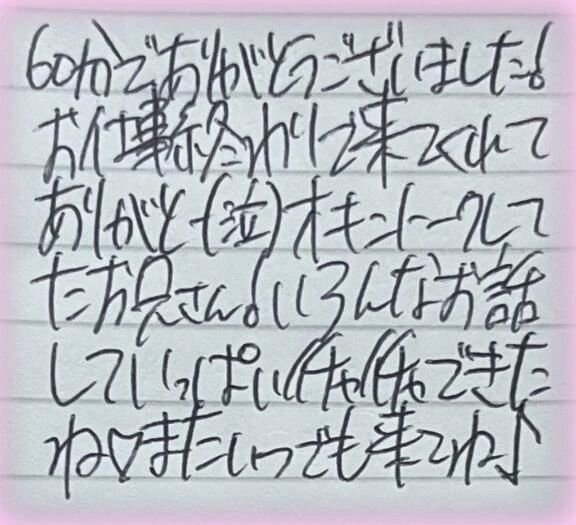 60分でありがとうございました!
お仕事終わりで来てくれて
ありがと(泣)オキニトークして
たお兄さん!いろんなお話
していっぱいイチャイチャできた
ね♡またいつでも来てね♪